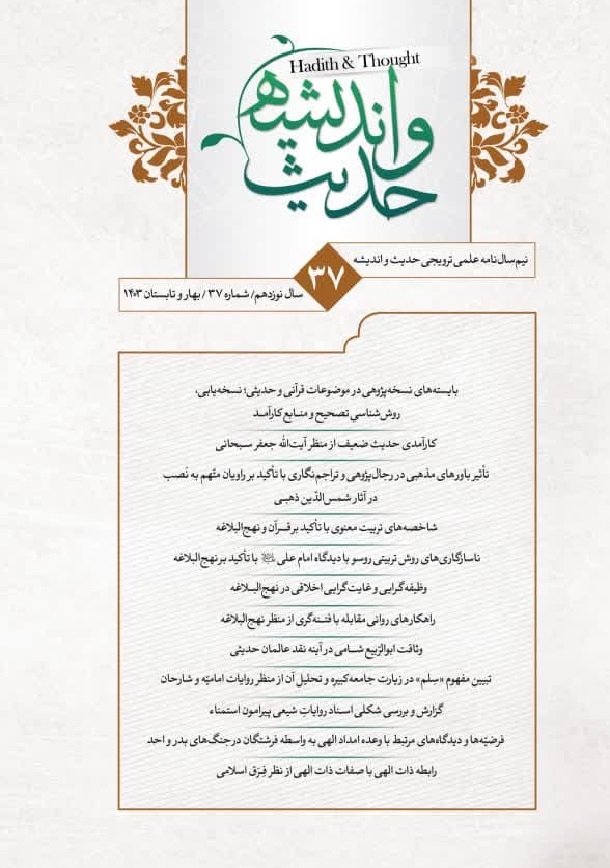 Hadith & Thought
حدیث و اندیشه
نیم‌سال‌نامه علمی ترویجی حدیث و اندیشه
۳۷
سال نوزدهم/ شماره ۳۷ / بهار و تابستان ۱۴۰۳
بایسته‌های نسخه‌پژوهی در موضوعات قرآنی و حدیثی؛ نسخه‌یابی،
روش‌شناسی تصحیح و منابع کارآمد
کارآمدی حدیث ضعیف از منظر آیت‌الله جعفر سبحانی
تأثیر باورهای مذهبی در رجال‌پژوهی و تراجم‌نگاری با تأکید بر راویان متّهم به نَصب
در آثار شمس‌الدّین ذهبی
شاخصه‌های تربیت معنوی با تأکید بر قرآن و نهج‌البلاغه
ناسازگاری‌های روش تربیتی روسو با دیدگاه امام علی با تأکید بر نهج‌البلاغه
وظیفه‌گرایی و غایت‌گرایی اخلاقی در نهج‌البلاغه
راهکارهای روانی مقابله با فتنه‌گری از منظر نهج‌البلاغه
وثاقت ابوالرّبیع شامی در آینه نقد عالمان حدیثی
تبیین مفهوم «سِلم» در زیارت جامعه‌کبیره و تحلیل آن از منظر روایات امامیّه و شارحان
گزارش و بررسی شکلی اسناد روایات شیعی پیرامون استمناء
فرضیّه‌ها و دیدگاه‌های مرتبط با وعده امداد الهی به واسطه فرشتگان در جنگ‌های بدر و احد
رابطه ذات الهی با صفات ذات الهی از نظر فِرَق اسلامی